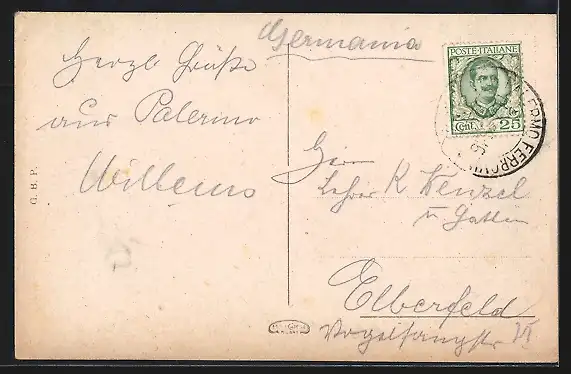 Germania
POSTE·ITALIANE
Cmi. 25
ERMO FERROVIA
Herzl. Grüße
aus Palermo
Willems
Herrn
Lehrer K Wenzel
u. Gattin
Elberfeld
Vogelsangstr
G. B. P.